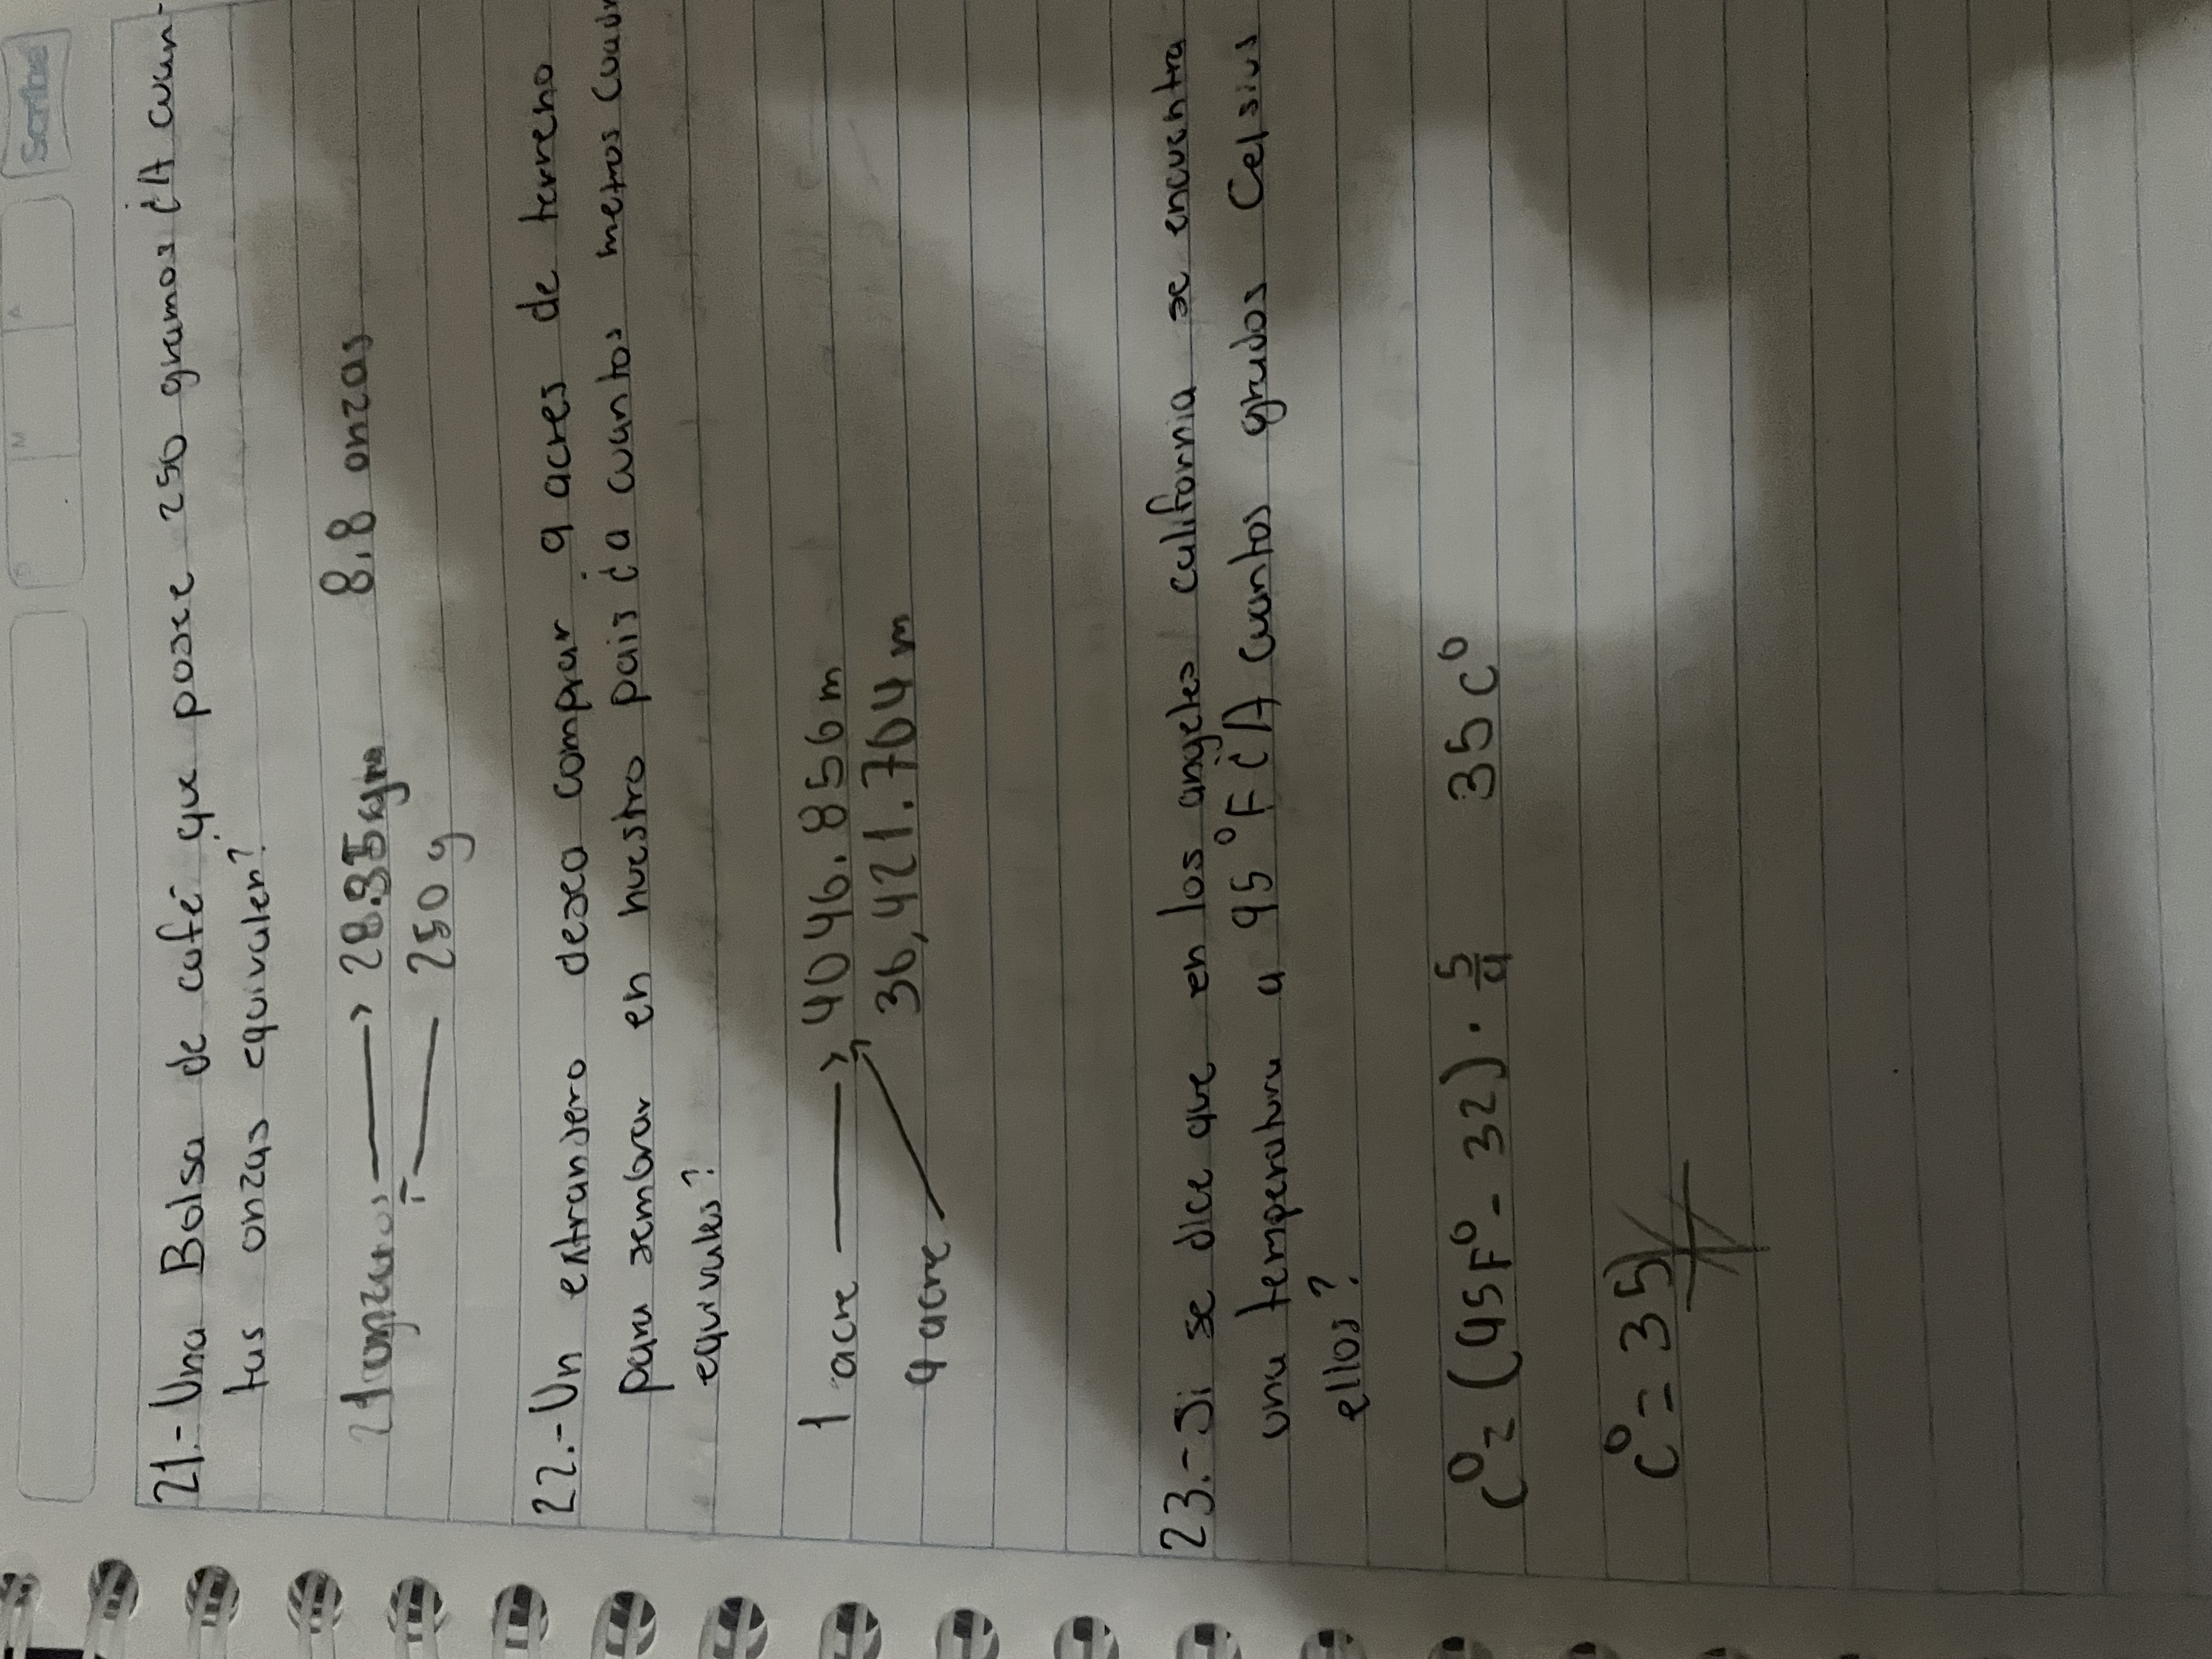 Scribe
D M A
21.- Una Bolsa de café que posee 250 gramos ¿A cuan-
tas onzas equivalen?
28.35 8.8 onzas
250 g
22.- Un extranjero desea comprar 9 acres de terreno
para sembrar en nuestro pais ¿a cuantos metros
equivales?
1 acre → 4046.856 m
9 acre 36,421.704 m
23.- Si se dice que en los angeles california se encuentra
una temperatura a 95 °F ¿A cuantos grados Celsius
ellos?
C° = (95F° - 32) · 5/9 35 C°
C° = 35